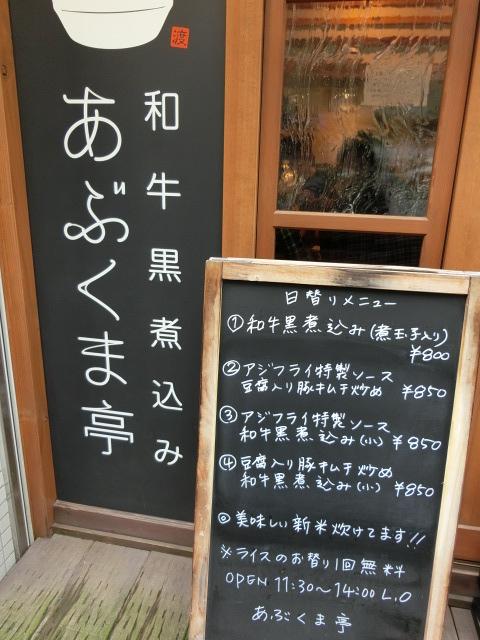 渡
和牛黒煮込み
あぶくま亭
日替りメニュー
① 和牛黒煮込み(煮玉子入り)
¥800
② アジフライ特製ソース
豆腐入り豚キムチ炒め ¥850
③ アジフライ特製ソース
和牛黒煮込み(小) ¥850
④ 豆腐入り豚キムチ炒め
和牛黒煮込み(小) ¥850
◎ 美味しい新米炊けてます!!
※ライスのお替り1回無料
OPEN 11:30〜14:00 L.O
あぶくま亭